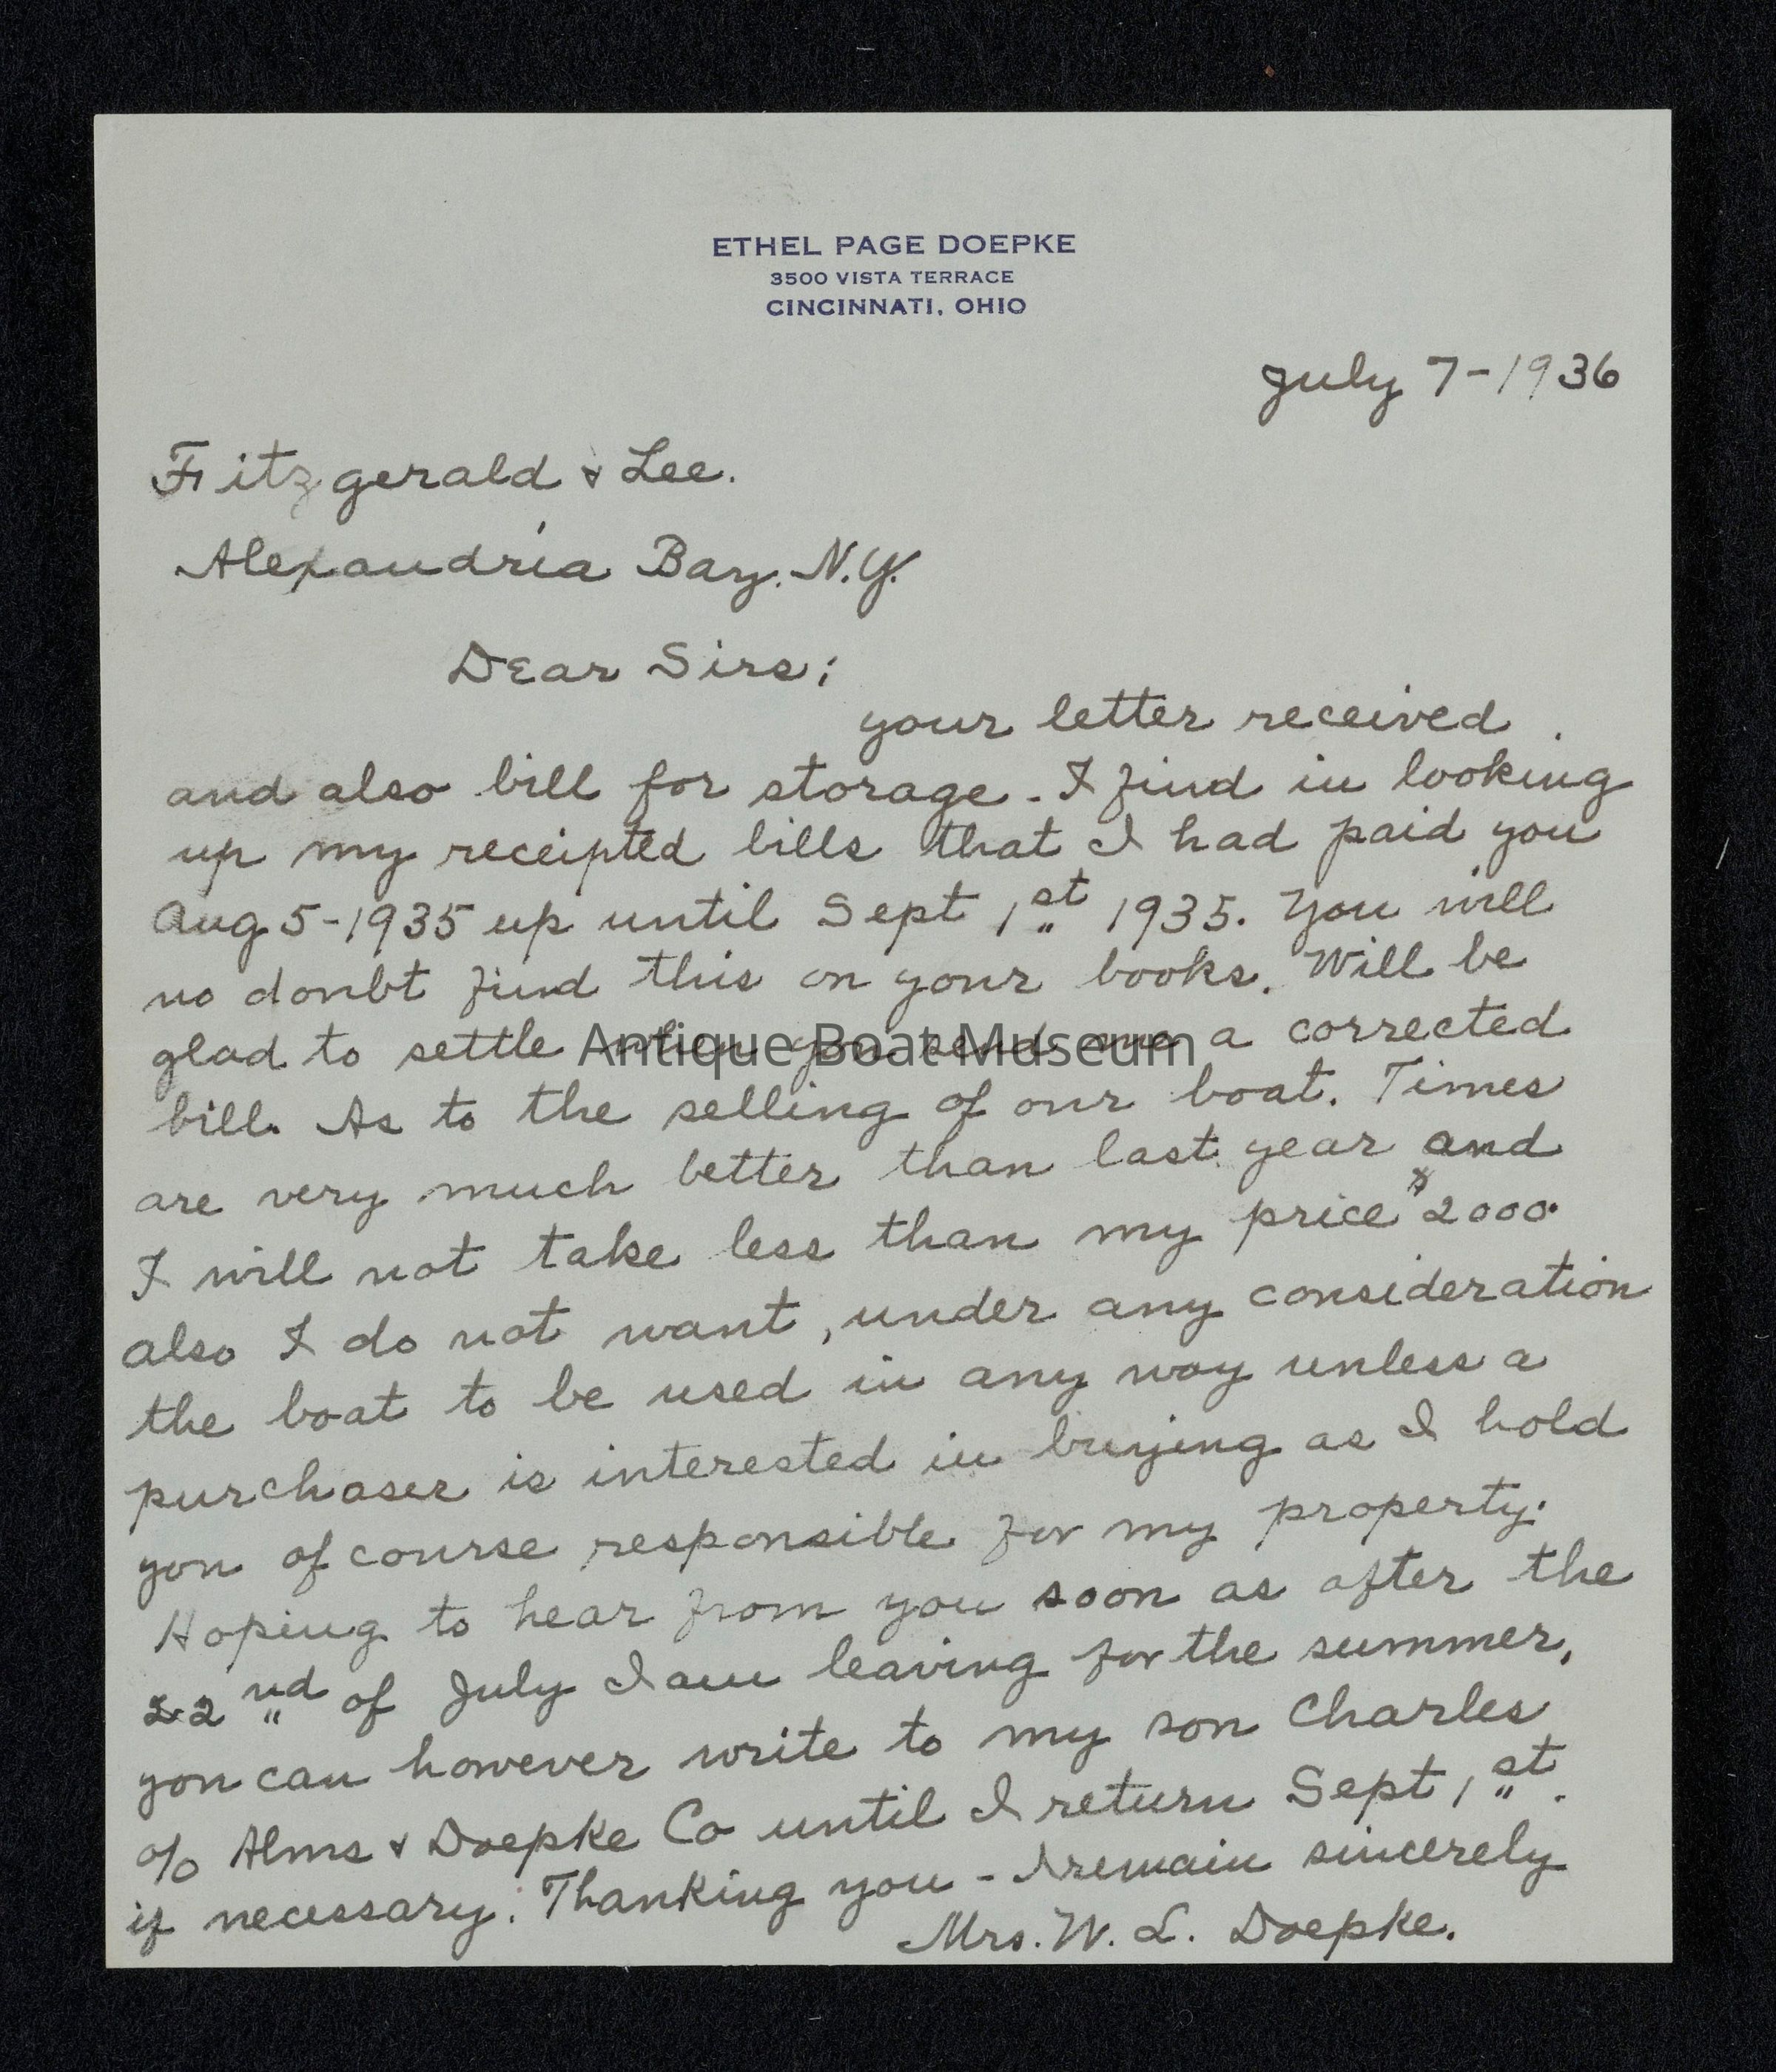 ETHEL PAGE DOEPKE
3500 VISTA TERRACE
CINCINNATI, OHIO
July 7-1936
Fitzgerald & Lee.
Alexandria Bay. N.Y.
Dear Sirs;
your letter received
and also bill for storage - I find in looking
up my receipted bills that I had paid you
Aug 5-1935 up until Sept 1st 1935. You will
no doubt find this on your books. Will be
glad to settle when you send me a corrected
Antique Boat Museum
bill. As to the selling of our boat. Times
are very much better than last year and
I will not take less than my price $2000.
also I do not want, under any consideration
the boat to be used in any way unless a
purchaser is interested in buying as I hold
you of course responsible for my property.
Hoping to hear from you soon as after the
22nd of July I am leaving for the summer,
you can however write to my son Charles
c/o Alms & Doepke Co until I return Sept 1st.
if necessary. Thanking you - I remain sincerely
Mrs. W. L. Doepke.